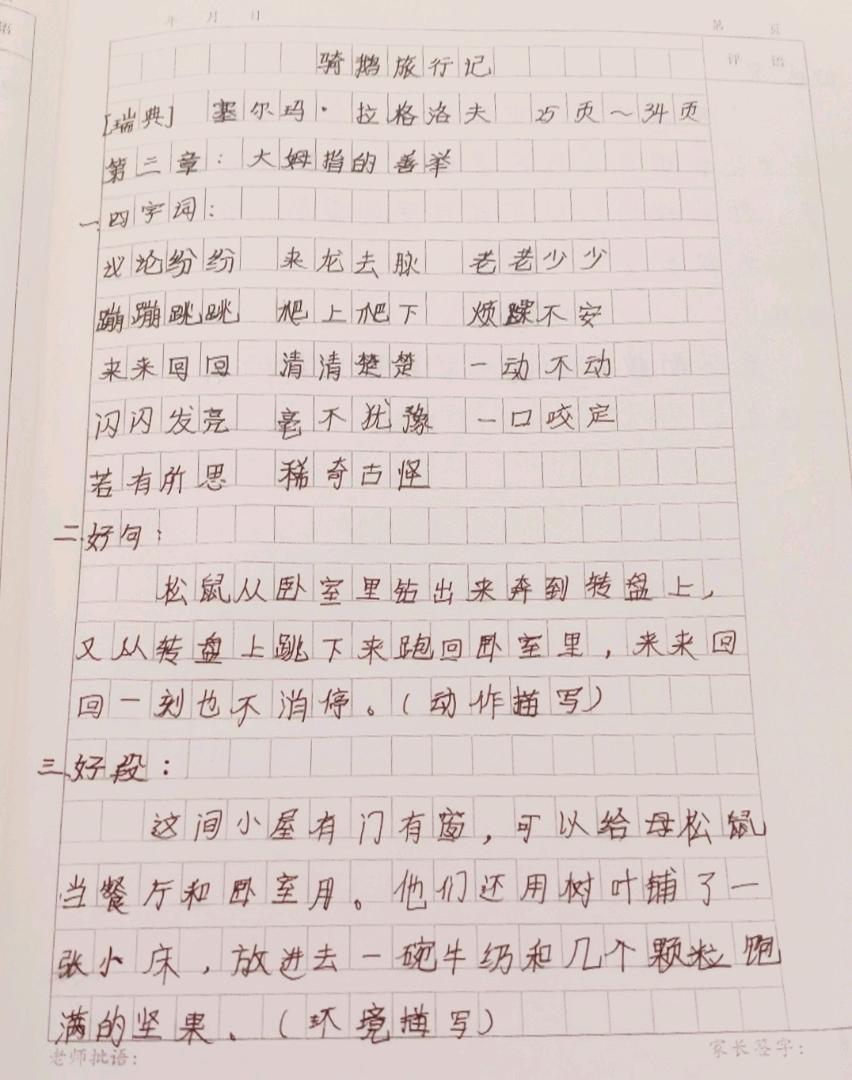 年 月 日
第 页
评 语
骑鹅旅行记
[瑞典] 塞尔玛·拉格洛夫 25页~34页
第三章:大姆指的善举
一.四字词:
议论纷纷 来龙去脉 老老少少
蹦蹦跳跳 爬上爬下 烦躁不安
来来回回 清清楚楚 一动不动
闪闪发亮 毫不犹豫 一口咬定
若有所思 稀奇古怪
二.好句:
松鼠从卧室里钻出来奔到转盘上,
又从转盘上跳下来跑回卧室里,来来回
回一刻也不消停。(动作描写)
三.好段:
这间小屋有门有窗,可以给母松鼠
当餐厅和卧室用。他们还用树叶铺了一
张小床,放进去一碗牛奶和几个颗粒饱
满的坚果。(环境描写)
老师批语:
家长签字: